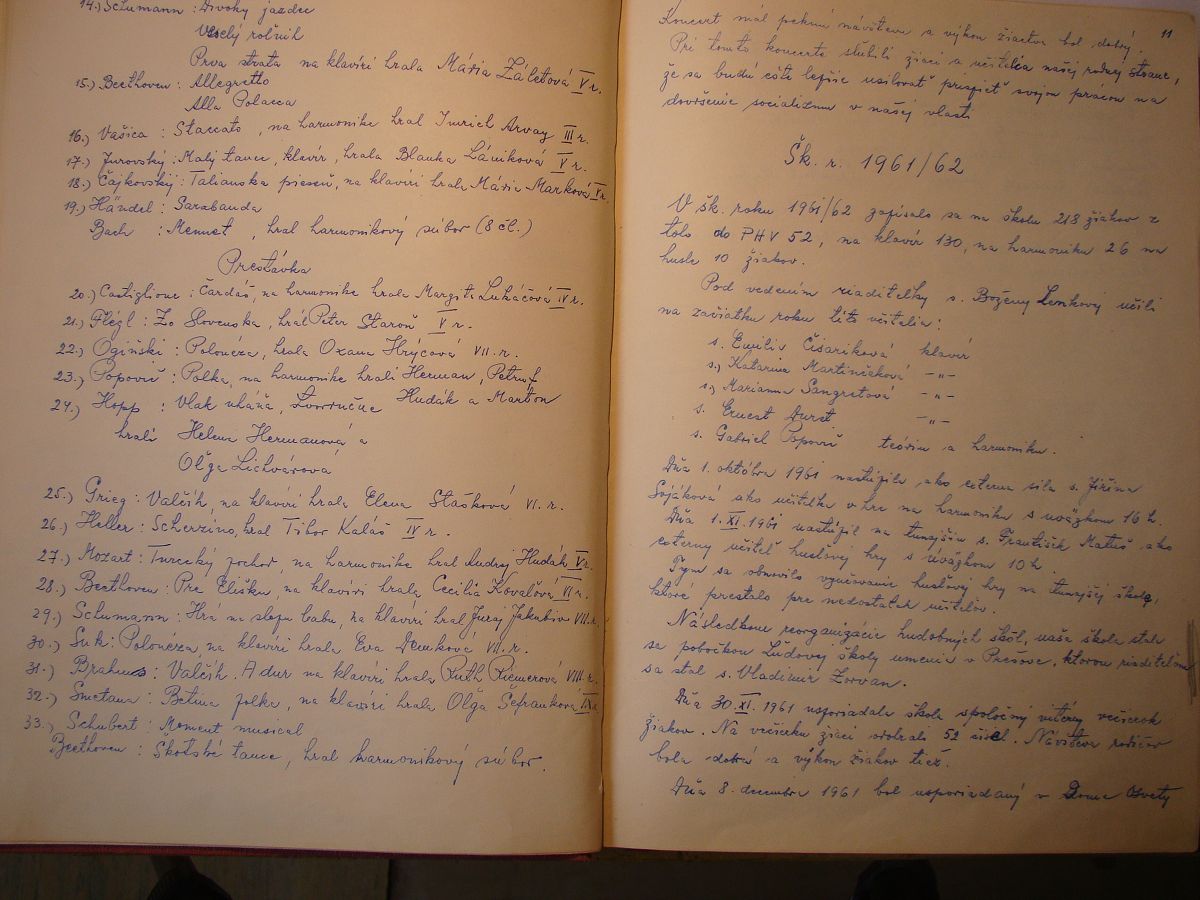 14.) Schumann : Divoky jazdec
Veselý roľník
Prva strata na klavíri hrala Mária Záletová V r.
15.) Beethoven : Allegretto
Alla Polacca
16.) Vašica : Staccato, na harmonike hral Imrich Arvay III r.
17.) Jurovský : Malý tanec, klavír, hrala Blanka Lániková V r.
18.) Čajkovský : Talianska pieseň, na klavíri hrala Mária Marková V r.
19.) Händel : Sarabanda
Bach : Menuet, hral harmonikový súbor (8 čl.)
Prestávka
20.) Castiglione : Čardáš, na harmonike hrala Margita Lukáčová IV r.
21.) Flégl : Zo Slovenska, hral Peter Staroň V r.
22.) Ogiňski : Polonéza, hrala Oxana Hrycová VII. r.
23.) Popovič : Polka, na harmonike hrali Herman, Petruf,
Hudák a Marton
24.) Hopp : Vlak uháňa, štvorručne
hrali Helena Hermanová a
Oľga Lichvárová
25.) Grieg : Valčík, na klavíri hrala Elena Stašková VI. r.
26.) Heller : Scherzino, hral Tibor Kaláš IV r.
27.) Mozart : Turecký pochod, na harmonike hral Andrej Hudák V r.
28.) Beethoven : Pre Elišku, na klavíri hrala Cecilia Kovaľová VI r.
29.) Schumann : Hra na slepu babu, na klavíri hral Juraj Jakubiv VII. r.
30.) Suk : Polonéza na klavíri hrala Eva Demková VII. r.
31.) Brahms : Valčík. A dur na klavíri hrala Ruth Riemerová VIII r.
32.) Smetana : Betina polka, na klavíri hrala Oľga Šefranková IX r.
33.) Schubert : Moment musical
Beethoven : Škótské tance, hral harmonikový súbor.
11
Koncert mal peknú návštevu a výkon žiactva bol dobrý.
Pri tomto koncerte slúbili žiaci a učitelia našej rodnej strane,
že sa budú ešte lepšie usilovať prispieť svojou prácou na
dovršenie socializmu v našej vlasti
Šk. r. 1961/62
V šk. roku 1961/62 zapísalo sa na školu 218 žiakov z
toho do PHV 52, na klavír 130, na harmoniku 26 na
husle 10 žiakov.
Pod vedením riaditelky s. Boženy Lemkovej učili
na začiatku roku títo učitelia :
s. Emilia Čisariková klavír
s. Katarína Martinčeková -„-
s. Marianna Sangretová -„-
s. Ernest Auret -„-
s. Gabriel Popovič teóriu a harmoniku.
Dňa 1. októbra 1961 nastúpila, ako externa sila s. Jiřina
Sojáková ako učitelka v hre na harmoniku s uväzkom 16 h.
Dňa 1. XI. 1961 nastúpil na tunajšiu s. František Matuš ako
externy učiteľ huslovej hry s úväzkom 10 h.
Tym sa obnovilo vyučovanie huslovej hry na tunajšej škole,
ktoré prestalo pre nedostatok učitelov.
Následkom reorganizácie hudobných škôl, naša škola stala
se pobočkou Ludovej školy umenia v Prešove, ktorou riaditelom
sa stal s. Vladimir Zorvan.
Dňa 30. XI. 1961 usporiadala škola spoločný interny večierok
žiakov. Na večierku žiaci odohrali 52 čísel. Návšteva rodičov
bola dobrá a výkon žiakov tiež.
Dňa 8. decembra 1961 bol usporiadaný v Dome Osvety